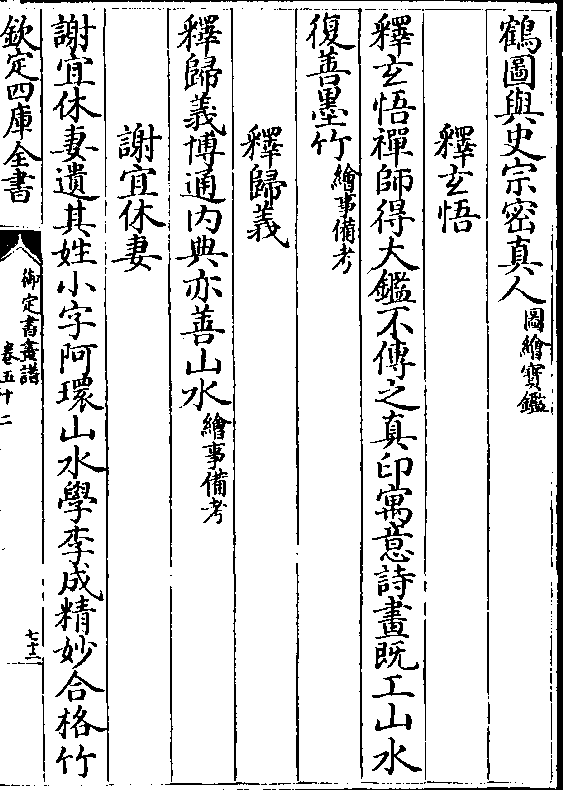 鶴圖與史宗密真人圖繪寶鑑
釋玄悟
釋玄悟禪師得大鑑不傳之真印寓意詩畫既工山水
復善墨竹繪事備考
釋歸義
釋歸義博通内典亦善山水繪事備考
謝宜休妻
謝宜休妻遺其姓小字阿環山水學李成精妙合格竹
欽定四庫全書
御定書畫譜
卷五十二
七十二